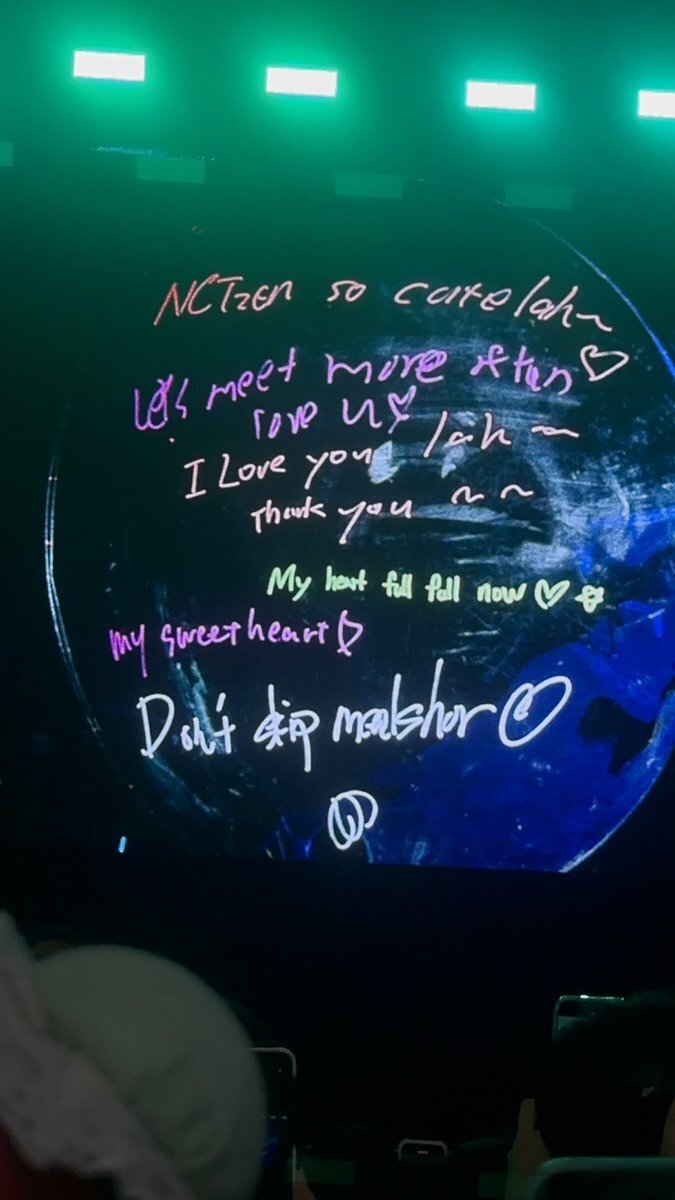 NCTzen so cute lah~
Let's meet more often♡
love u♡
I Love you lah ~
Thank you ~ ~
My heart full full now ♡
my sweetheart♡
Don't skip meals hor ♡